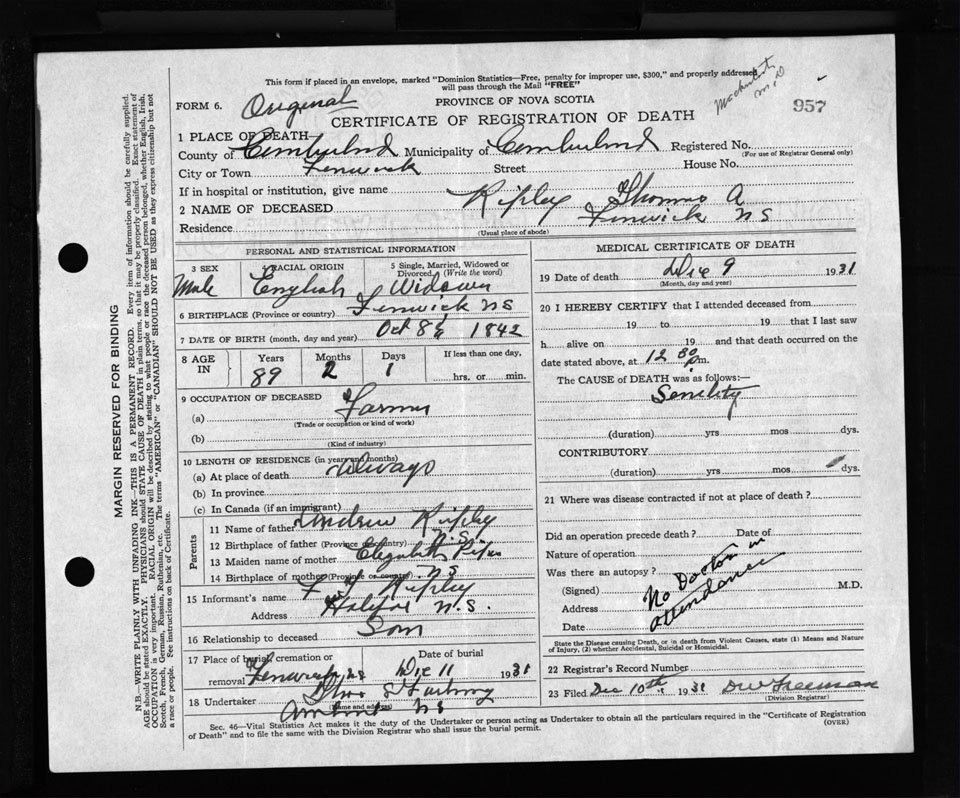 This form if placed in an envelope, marked "Dominion Statistics—Free, penalty for improper use, $300," and properly addressed
will pass through the Mail "FREE"
FORM 6. Original PROVINCE OF NOVA SCOTIA
957
CERTIFICATE OF REGISTRATION OF DEATH
M.D
1 PLACE OF DEATH
County of Cumberland Municipality of Cumberland Registered No.
(For use of Registrar General only)
City or Town Fenwick Street House No.
If in hospital or institution, give name
2 NAME OF DECEASED Ripley Thomas A
Residence Fenwick NS
(Usual place of abode)
PERSONAL AND STATISTICAL INFORMATION
3 SEX RACIAL ORIGIN 5 Single, Married, Widowed or Divorced. (Write the word)
Male English Widower
6 BIRTHPLACE (Province or country) Fenwick NS
7 DATE OF BIRTH (month, day and year) Oct 8th 1842
8 AGE IN Years Months Days If less than one day,
89 2 1 hrs. or min.
9 OCCUPATION OF DECEASED
(a) Farmer
(Trade or occupation or kind of work)
(b)
(Kind of industry)
10 LENGTH OF RESIDENCE (in years and months)
(a) At place of death always
(b) In province
(c) In Canada (if an immigrant)
Parents
11 Name of father Andrew Ripley
12 Birthplace of father (Province or country) N.S.
13 Maiden name of mother Elizabeth
14 Birthplace of mother (Province or country) NS
15 Informant's name Ripley
Address Halifax N.S.
16 Relationship to deceased Son
17 Place of burial, cremation or removal Date of burial
Fenwick NS Dec 11 1931
18 Undertaker
(Name and address)
Amherst NS
MEDICAL CERTIFICATE OF DEATH
19 Date of death Dec 9 1931
(Month, day and year)
20 I HEREBY CERTIFY that I attended deceased from
19 to 19 that I last saw
h alive on 19 and that death occurred on the
date stated above, at 12 30 pm.
The CAUSE of DEATH was as follows:—
Senility
(duration) yrs mos dys.
CONTRIBUTORY
(duration) yrs mos dys.
21 Where was disease contracted if not at place of death?
Did an operation precede death? Date of
Nature of operation
Was there an autopsy?
(Signed) M.D.
Address
Date
No Doctor in
attendance
State the Disease causing Death, or in death from Violent Causes, state (1) Means and Nature
of Injury, (2) whether Accidental, Suicidal or Homicidal.
22 Registrar's Record Number
23 Filed Dec 10th 1931 Freeman
(Division Registrar)
Sec. 46—Vital Statistics Act makes it the duty of the Undertaker or person acting as Undertaker to obtain all the particulars required in the "Certificate of Registration
of Death" and to file the same with the Division Registrar who shall issue the burial permit.
(OVER)
MARGIN RESERVED FOR BINDING
N.B.—WRITE PLAINLY WITH UNFADING INK—THIS IS A PERMANENT RECORD. Every item of information should be carefully supplied.
AGE should be stated EXACTLY. PHYSICIANS should STATE CAUSE OF DEATH in plain terms, so that it may be properly classified. Exact statement of
OCCUPATION is very important. RACIAL ORIGIN will be described by stating to what people or race the deceased person belonged, whether English, Irish,
Scotch, French, German, Russian, Ruthenian, etc. The terms "AMERICAN" or "CANADIAN" SHOULD NOT BE USED as they express citizenship but not
a race or people. See instructions on back of Certificate.